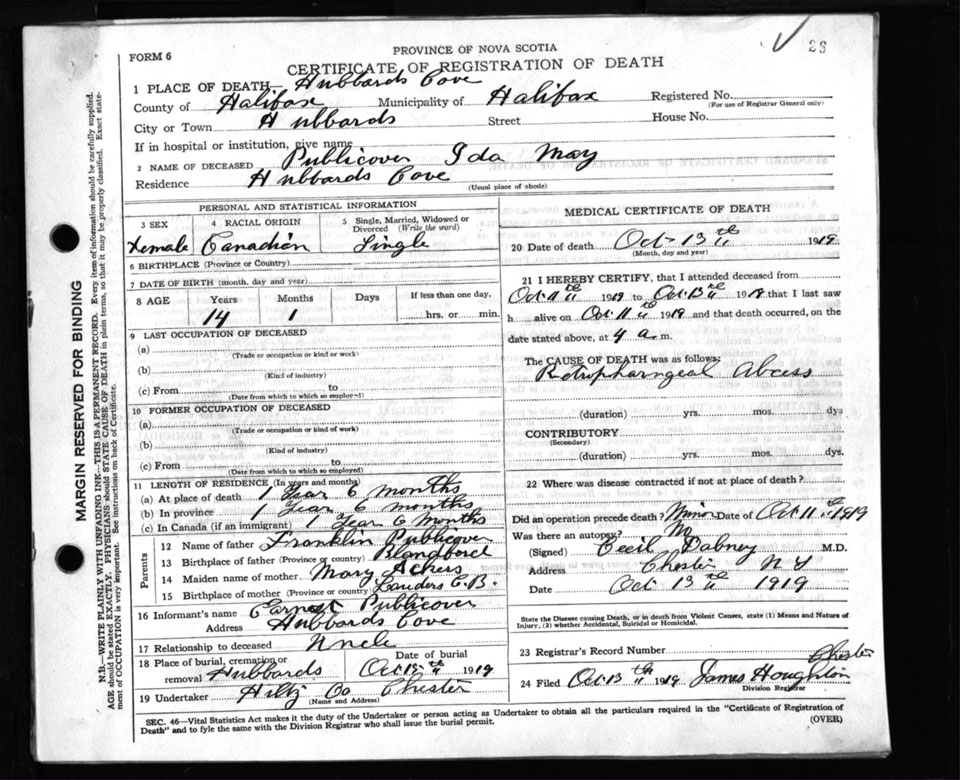 26
PROVINCE OF NOVA SCOTIA
FORM 6
CERTIFICATE OF REGISTRATION OF DEATH
1 PLACE OF DEATH Hubbards Cove
County of Halifax Municipality of Halifax Registered No.
(For use of Registrar General only)
City or Town Hubbards Street House No.
If in hospital or institution, give name
2 NAME OF DECEASED Publicover Ida May
Residence Hubbards Cove
(Usual place of abode)
PERSONAL AND STATISTICAL INFORMATION
3 SEX 4 RACIAL ORIGIN 5 Single, Married, Widowed or
Divorced (Write the word)
Female Canadian Single
6 BIRTHPLACE (Province or Country)
7 DATE OF BIRTH (month, day and year)
8 AGE Years Months Days If less than one day,
14 1 hrs. or min.
9 LAST OCCUPATION OF DECEASED
(a)
(Trade or occupation or kind or work)
(b)
(Kind of industry)
(c) From to
(Date from which to which so employed)
10 FORMER OCCUPATION OF DECEASED
(a)
(Trade or occupation or kind of work)
(b)
(Kind of industry)
(c) From to
(Date from which to which so employed)
11 LENGTH OF RESIDENCE (In years and months)
(a) At place of death 1 Year 6 months
(b) In province 1 Year 6 months
(c) In Canada (if an immigrant) 1 Year 6 Months
Parents
12 Name of father Franklin Publicover
13 Birthplace of father (Province or country) Blandford
14 Maiden name of mother Mary Ackers
15 Birthplace of mother (Province or country) C.B.
16 Informant's name Publicover
Address Hubbards Cove
17 Relationship to deceased Uncle
18 Place of burial, cremation or Date of burial
removal Hubbards Oct 15th 1919
19 Undertaker Hiltz Co Chester
(Name and Address)
MEDICAL CERTIFICATE OF DEATH
20 Date of death Oct 13th 1919
(Month, day and year)
21 I HEREBY CERTIFY, that I attended deceased from
Oct 11th 1919 to Oct 13th 1919 that I last saw
h alive on Oct 11th 1919 and that death occurred, on the
date stated above, at 4 a.m.
The CAUSE OF DEATH was as follows:
Retropharyngeal Abcess
(duration) yrs. mos. dys
CONTRIBUTORY
(Secondary)
(duration) yrs. mos. dys.
22 Where was disease contracted if not at place of death?
Did an operation precede death? Minor Date of Oct 11th 1919
Was there an autopsy? No
(Signed) Cecil Dabney M.D.
Address Chester
Date Oct 13th 1919
State the Disease causing Death, or in death from Violent Causes, state (1) Means and Nature of
Injury, (2) whether Accidental, Suicidal or Homicidal.
23 Registrar's Record Number
Chester
24 Filed Oct 13th 1919 James Houghton
Division Registrar
SEC. 46—Vital Statistics Act makes it the duty of the Undertaker or person acting as Undertaker to obtain all the particulars required in the "Certificate of Registration of
Death" and to fyle the same with the Division Registrar who shall issue the burial permit.
(OVER)
MARGIN RESERVED FOR BINDING
N.B.—WRITE PLAINLY WITH UNFADING INK—THIS IS A PERMANENT RECORD. Every item of information should be carefully supplied.
AGE should be stated EXACTLY. PHYSICIANS should STATE CAUSE OF DEATH in plain terms, so that it may be properly classified. Exact state-
ment of OCCUPATION is very important. See instructions on back of Certificate.